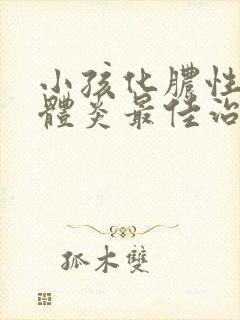 小孩化膿性
體炎最佳治
孤木雙